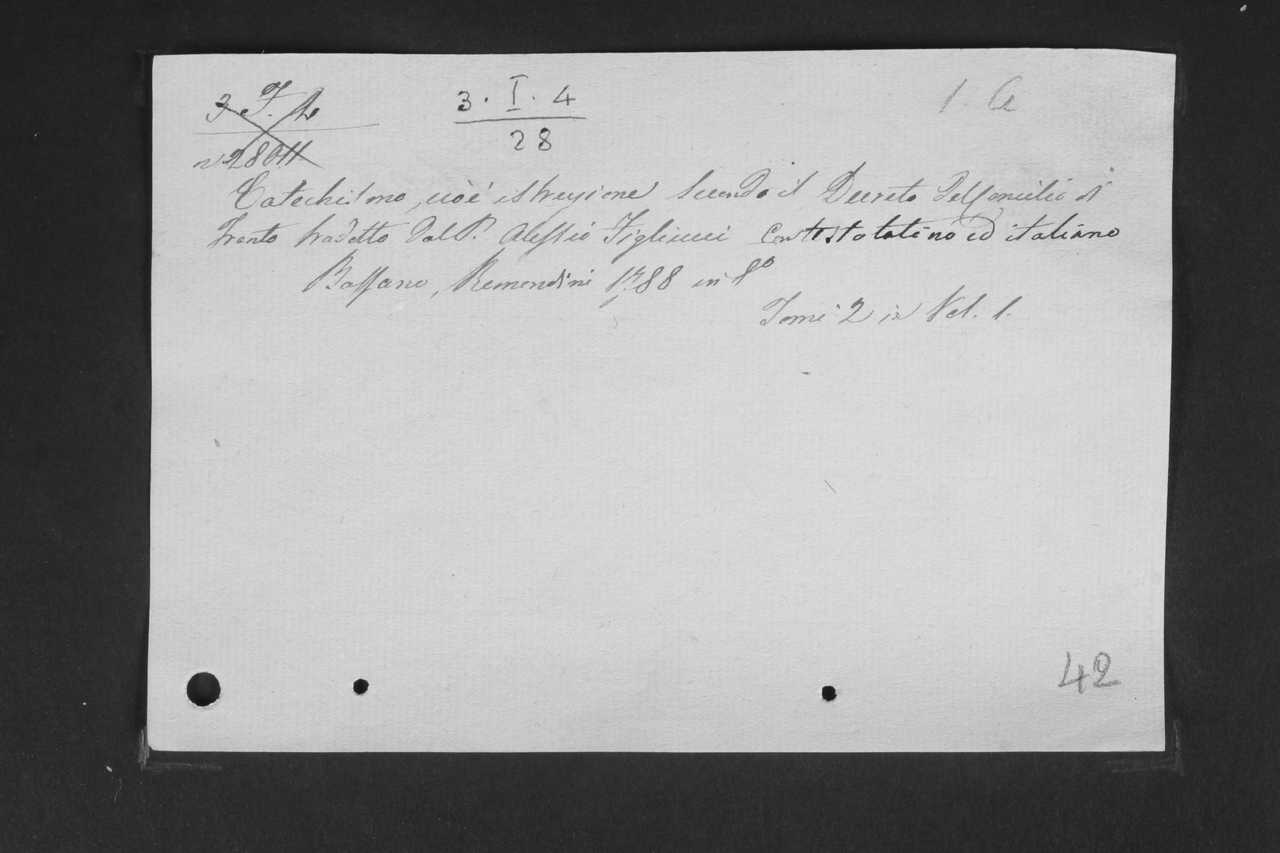 3. I. 4
28
1. A
Catechismo, cioè istruzione secondo il Decreto del Concilio di
Trento tradotto dal P. Alessio Figliucci Con testo latino ed italiano
Bassano, Remondini 1788 in 8º
Tomi 2 in Vol. 1.
42